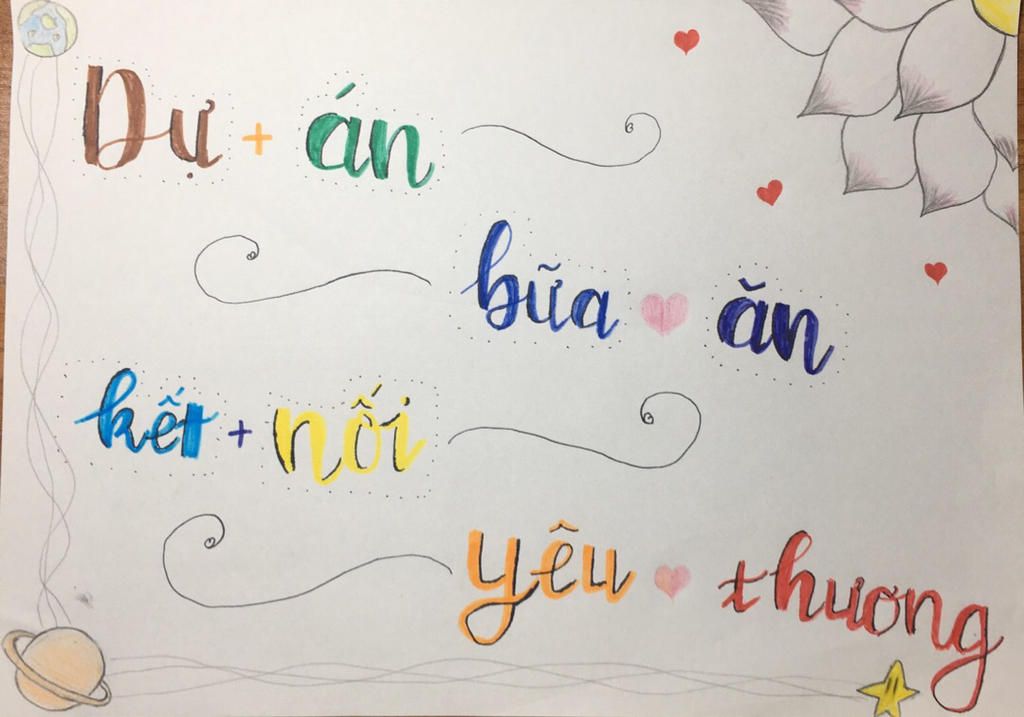 Dự + án
bữa ăn
kết + nối
yêu thương